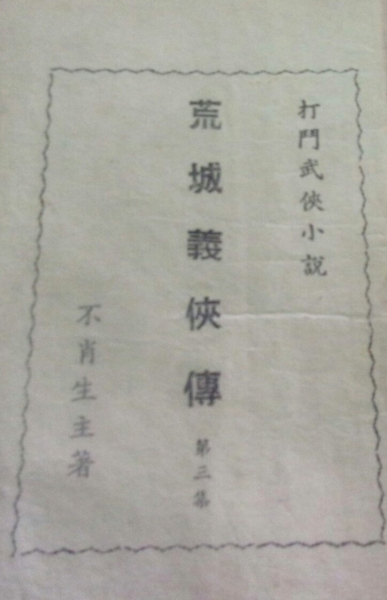 打鬥武俠小說
荒城義俠傳
第三集
不肖生主著